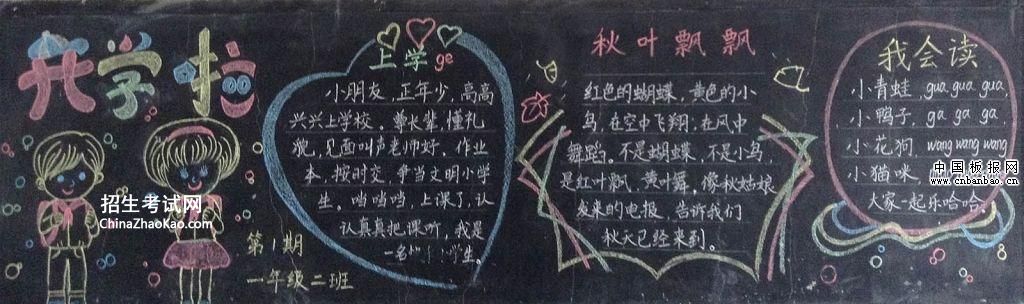 开学啦
招生考试网
ChinaZhaoKao.com
第1期
一年级二班
上学 ge
小朋友，正年少，高高
兴兴上学校。尊长辈，懂礼
貌，见面叫声老师好。作业
本，按时交，争当文明小学
生。当当当，上课了，认
认真真把课听，我是
一名学生。
秋叶飘飘
红色的蝴蝶，黄色的小
鸟，在空中飞翔，在风中
舞蹈。不是蝴蝶，不是小鸟，
是红叶飘，黄叶舞。像秋姑娘
发来的电报，告诉我们
秋天已经来到。
我会读
小青蛙，gua gua gua，
小鸭子，ga ga ga
小花狗，wang wang wang
小猫咪，
大家一起乐哈哈。
中国板报网
www.cnbanbao.cn